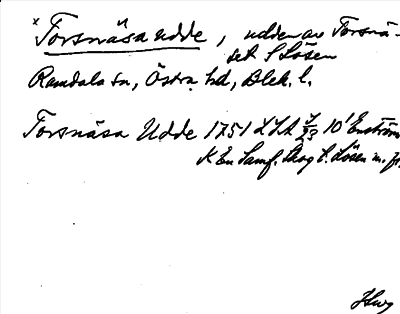 x Torsnäsa udde, udden av Torsnä-
set S Lösen
Ramdala sn, Östra hd, Blek. l.
Torsnäsa Udde 1751 LSA 10' Enström
K En Samf. Skog t. Lösen m. fl.